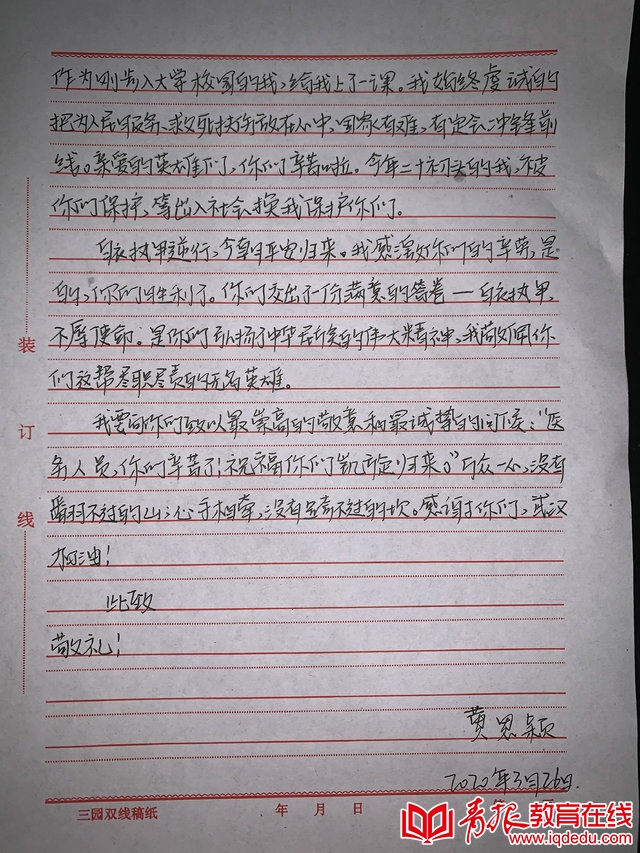 作为刚步入大学校园的我,给我上了一课。我始终虔诚的
把为人民服务、救死扶伤放在心中,国家有难,有定会冲锋前
线。亲爱的英雄们,你们辛苦啦。今年二十初头的我,被
你们保护,等出入社会换我保护你们。
白衣执甲逆行,今朝平安归来。我感染好你们的辛劳,是
的,你们胜利了。你们交出了一份满意的答卷——白衣执甲,
不辱使命。是你们弘扬了中华民族的伟大精神,我敬佩你
们这帮尽职尽责的无名英雄。
我要向你们致以最崇高的敬意和最诚挚的问候:“医
务人员,你们辛苦了!祝福你们凯旋归来。”万众一心,没有
翻不过的山;心手相牵,没有跨不过的坎。感谢你们,武汉
加油!
此致
敬礼!
黄思颖
2020年3月26日.
装
订
线
三园双线稿纸
年 月 日
青报教育在线
www.iqdedu.com